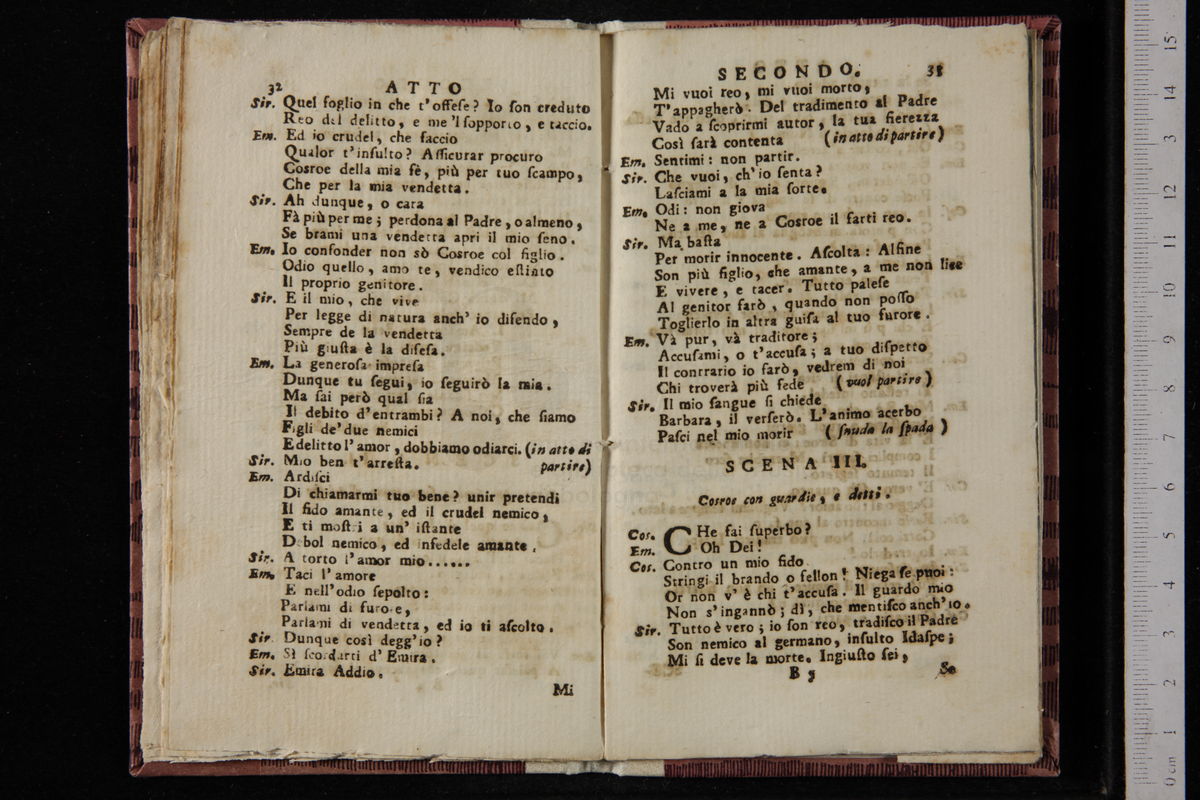 32 ATTO
Sir. Quel foglio in che t'offeſe? Io ſon creduto
Reo del delitto, e me'l ſopporto, e taccio.
Em. Ed io crudel, che faccio
Qualor t'inſulto? Aſſicurar procuro
Coſroe della mia fè, più per tuo ſcampo,
Che per la mia vendetta.
Sir. Ah dunque, o cara
Fà più per me; perdona al Padre, o almeno,
Se brami una vendetta apri il mio ſeno.
Em. Io confonder non sò Coſroe col figlio.
Odio quello, amo te, vendico eſtinto
Il proprio genitore.
Sir. E il mio, che vive
Per legge di natura anch' io difendo,
Sempre de la vendetta
Più giuſta è la difeſa.
Em. La generoſa impreſa
Dunque tu ſegui, io ſeguirò la mia.
Ma ſai però qual ſia
Il debito d'entrambi? A noi, che ſiamo
Figli de'due nemici
E delitto l'amor, dobbiamo odiarci. (in atto di
Sir. Mio ben t'arreſta. partire)
Em. Ardiſci
Di chiamarmi tuo bene? unir pretendi
Il fido amante, ed il crudel nemico,
E ti moſtri a un' iſtante
Debol nemico, ed infedele amante.
Sir. A torto l'amor mio......
Em. Taci l'amore
E nell'odio ſepolto:
Parlami di furore,
Parlami di vendetta, ed io ti aſcolto.
Sir. Dunque così degg'io?
Em. Sì ſcordarti d' Emira.
Sir. Emira Addio.
Mi
SECONDO. 33
Mi vuoi reo, mi vuoi morto,
T'appagherò. Del tradimento al Padre
Vado a ſcoprirmi autor, la tua fierezza
Così ſarà contenta (in atto di partire)
Em. Sentimi: non partir.
Sir. Che vuoi, ch'io ſenta?
Laſciami a la mia ſorte.
Em. Odi: non giova
Ne a me, ne a Coſroe il farti reo.
Sir. Ma baſta
Per morir innocente. Aſcolta: Alfine
Son più figlio, che amante, a me non lice
E vivere, e tacer. Tutto paleſe
Al genitor farò, quando non poſſo
Toglierlo in altra guiſa al tuo furore.
Em. Và pur, và traditore;
Accuſami, o t'accuſa; a tuo diſpetto
Il contrario io farò, vedrem di noi
Chi troverà più fede (vuol partire)
Sir. Il mio ſangue ſi chiede
Barbara, il verſerò. L'animo acerbo
Paſci nel mio morir (ſnuda la ſpada)
SCENA III.
Cosroe con guardie, e detti.
Cos. CHe fai ſuperbo?
Em. Oh Dei!
Cos. Contro un mio fido
Stringi il brando o fellon! Niega ſe puoi:
Or non v' è chi t'accuſa. Il guardo mio
Non s'ingannò; dì, che mentiſco anch'io.
Sir. Tutto è vero; io ſon reo, tradiſco il Padre
Son nemico al germano, inſulto Idaſpe;
Mi ſi deve la morte. Ingiuſto ſei,
B 3 Se
15
14
13
12
11
10
9
8
7
6
5
4
3
2
1
0 cm